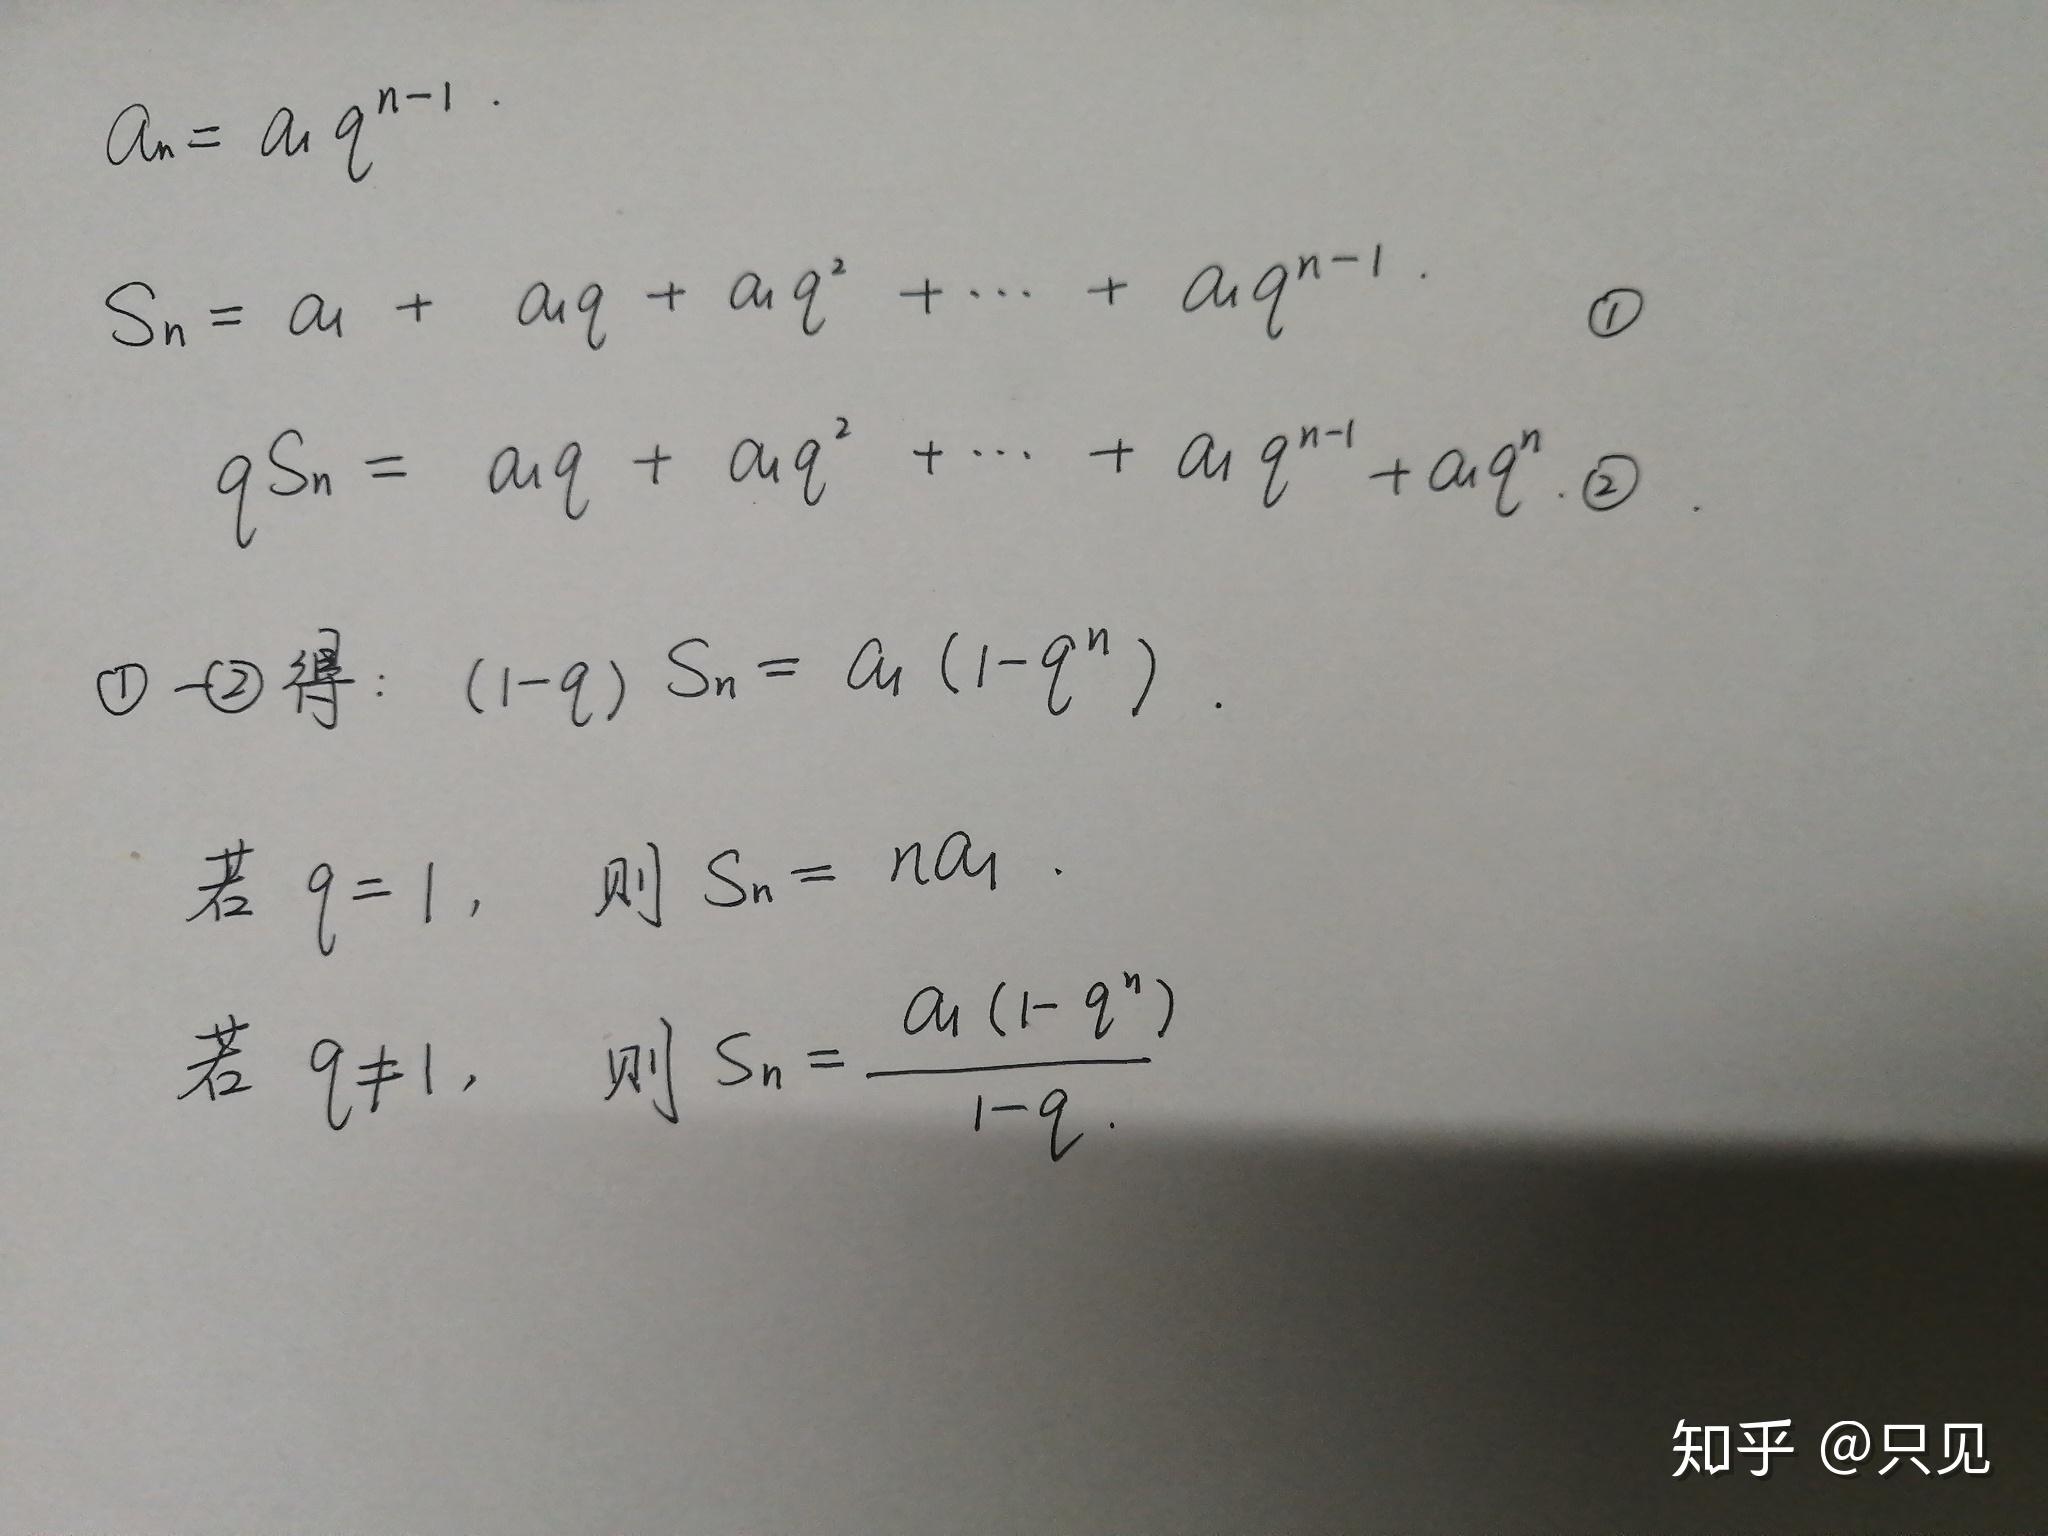 aₙ = a₁qⁿ⁻¹.
Sₙ = a₁ + a₁q + a₁q² + ⋯ + a₁qⁿ⁻¹. ①
qSₙ = a₁q + a₁q² + ⋯ + a₁qⁿ⁻¹ + a₁qⁿ. ② .
① - ② 得: (1-q) Sₙ = a₁ (1-qⁿ) .
若 q = 1, 则 Sₙ = na₁ .
若 q ≠ 1, 则 Sₙ = a₁(1-qⁿ) / 1-q .
知乎 @只见